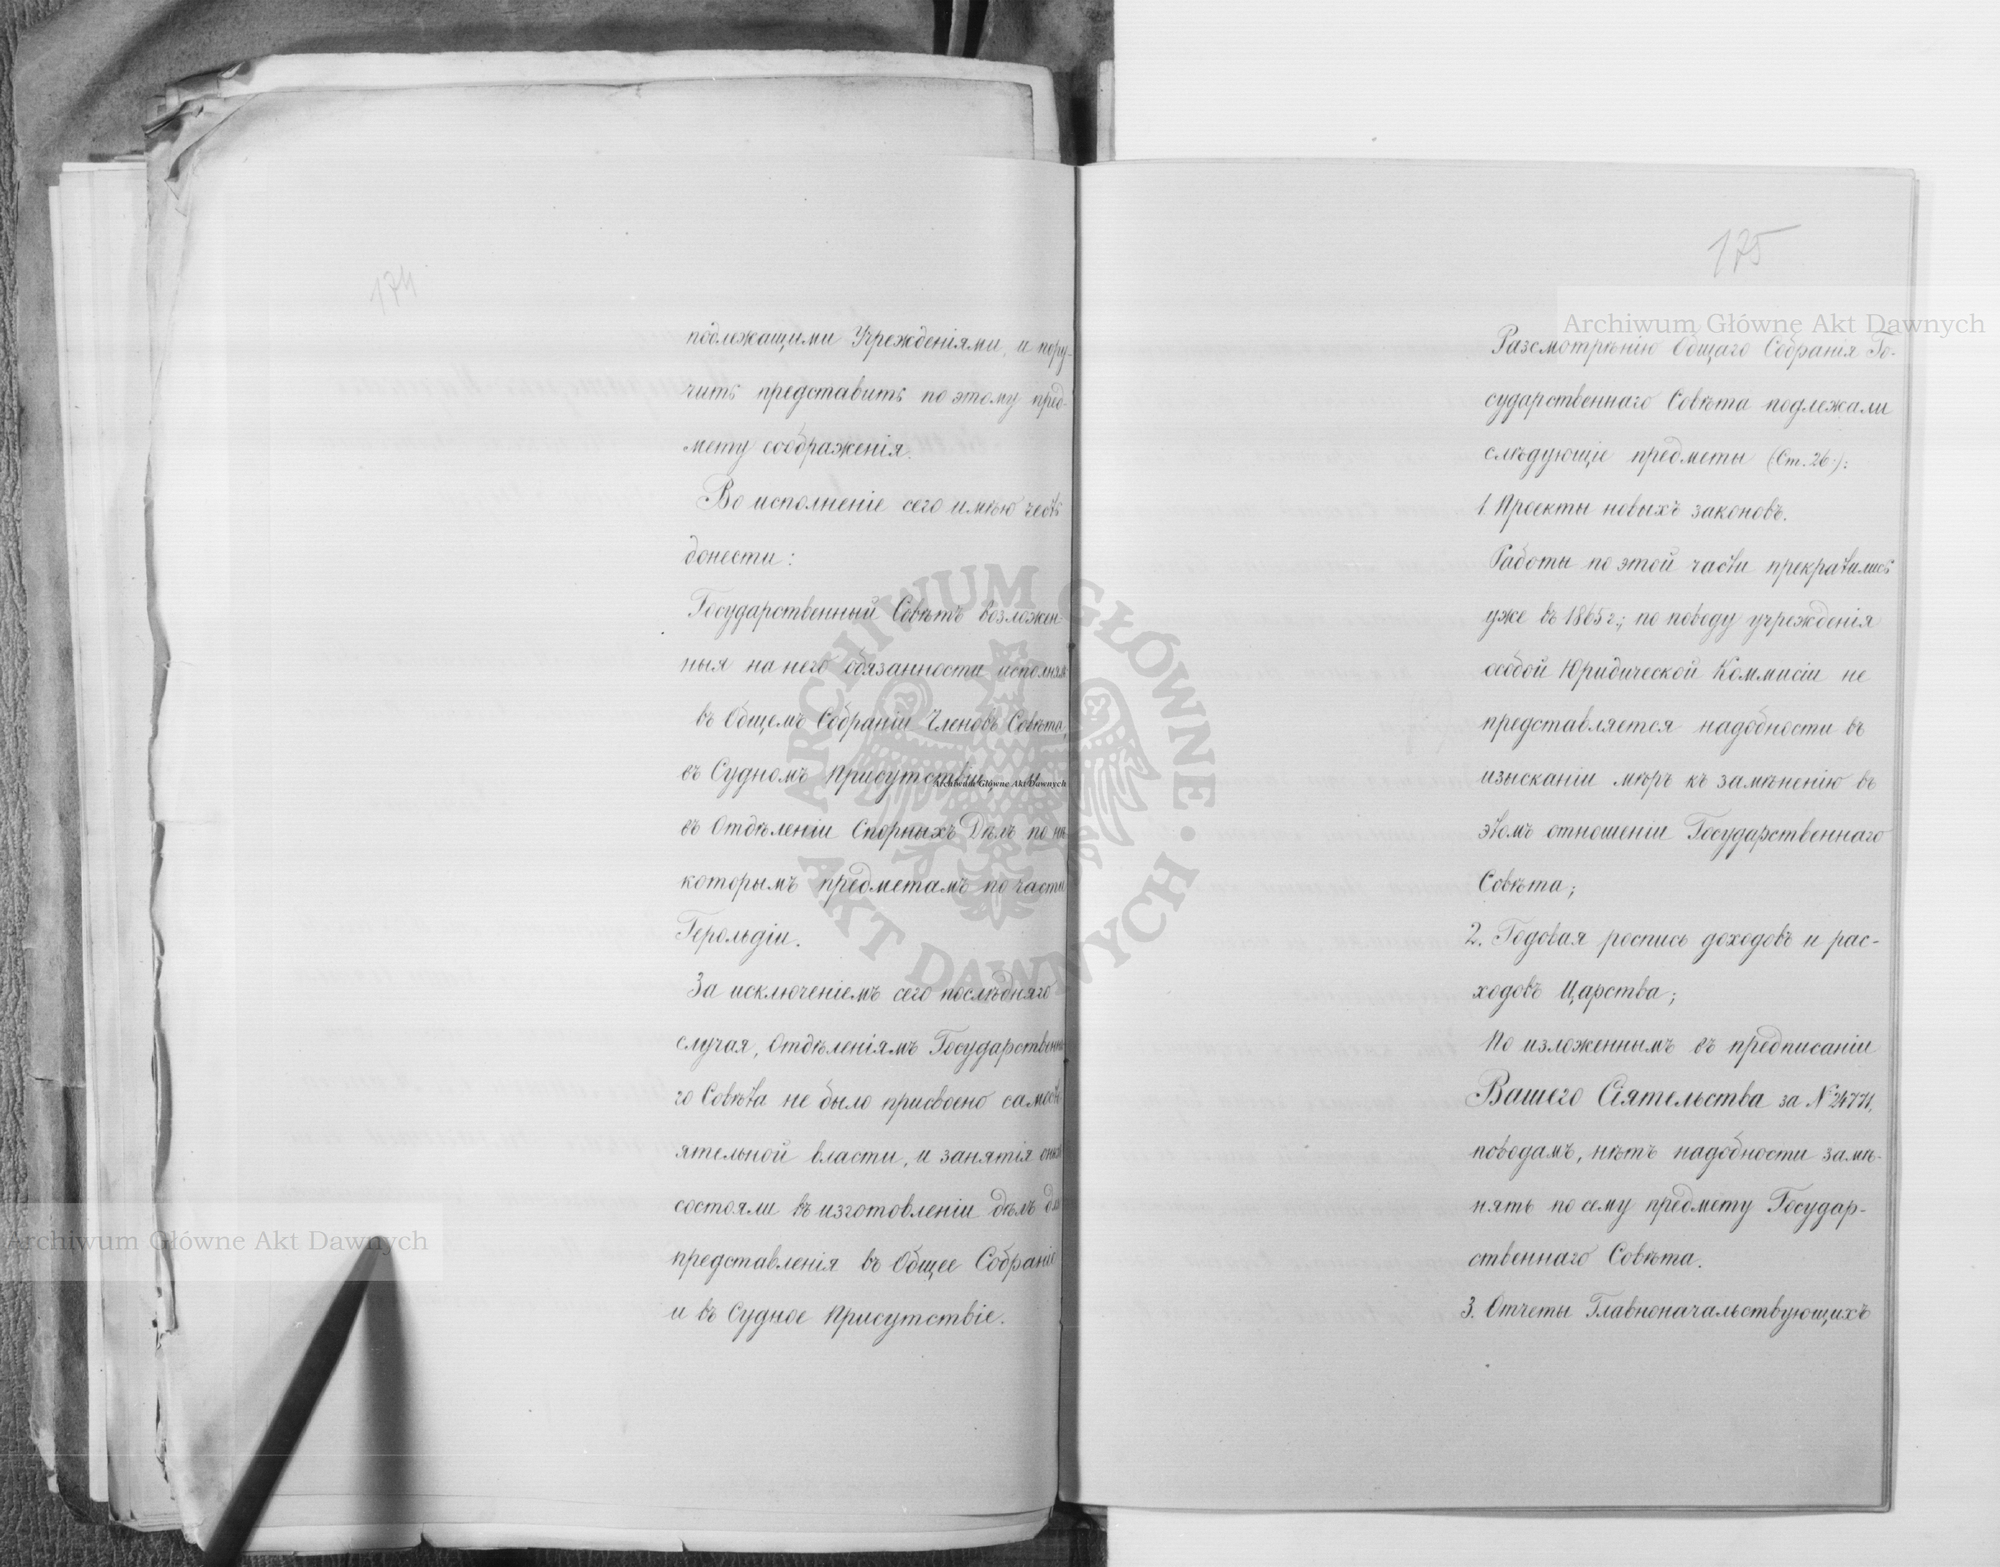 174
подлежащими Учрежденіями, и пору-
чить представить по этому пред-
мету соображенія.
Во исполненіе сего имѣю честь
донести:
Государственный Совѣтъ возложен-
ныя на него обязанности исполнялъ
въ Общемъ Собраніи Членовъ Совѣта,
въ Судномъ Присутствіи и
въ Отдѣленіи Спорныхъ Дѣлъ по нѣ
которымъ предметамъ по части
Герольдіи.
За исключеніемъ сего послѣдняго
случая, Отдѣленіямъ Государственна
го Совѣта не было присвоено самосто
ятельной власти, и занятія оныхъ
состояли въ изготовленіи дѣлъ для
представленія въ Общее Собраніе
и въ Судное Присутствіе.
175
Разсмотрѣнію Общаго Собранія Го-
сударственнаго Совѣта подлежали
слѣдующіе предметы (Ст. 26.):
1. Проекты новыхъ законовъ.
Работы по этой части прекратились
уже въ 1865 г.; по поводу учрежденія
особой Юридической Коммисіи не
представляется надобности въ
изысканіи мѣръ къ замѣненію въ
этомъ отношеніи Государственнаго
Совѣта;
2. Годовая роспись доходовъ и рас-
ходовъ Царства;
По изложеннымъ въ предписаніи
Вашего Сіятельства за № 24771,
поводамъ, нѣтъ надобности замѣ-
нять по сему предмету Государ-
ственнаго Совѣта.
3. Отчеты Главноначальствующихъ
Archiwum Główne Akt Dawnych
Archiwum Główne Akt Dawnych
Archiwum Główne Akt Dawnych
ARCHIWUM GŁÓWNE · AKT DAWNYCH ·